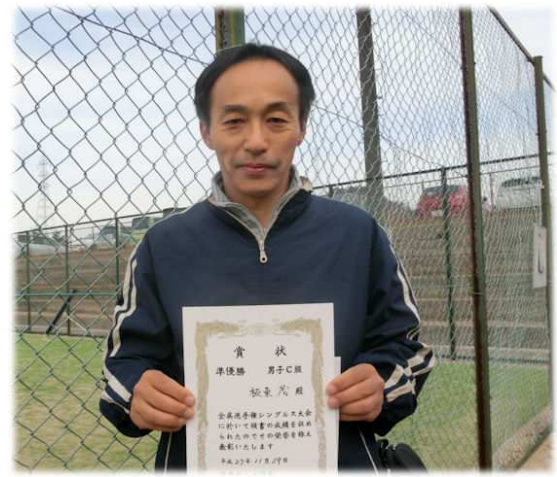 賞状
準優勝 男子C級
板東 茂 殿
全英選手権シングルス大会
に於いて頭書の成績を収め
られたのでその栄誉を称え
表彰いたします
平成27年11月29日